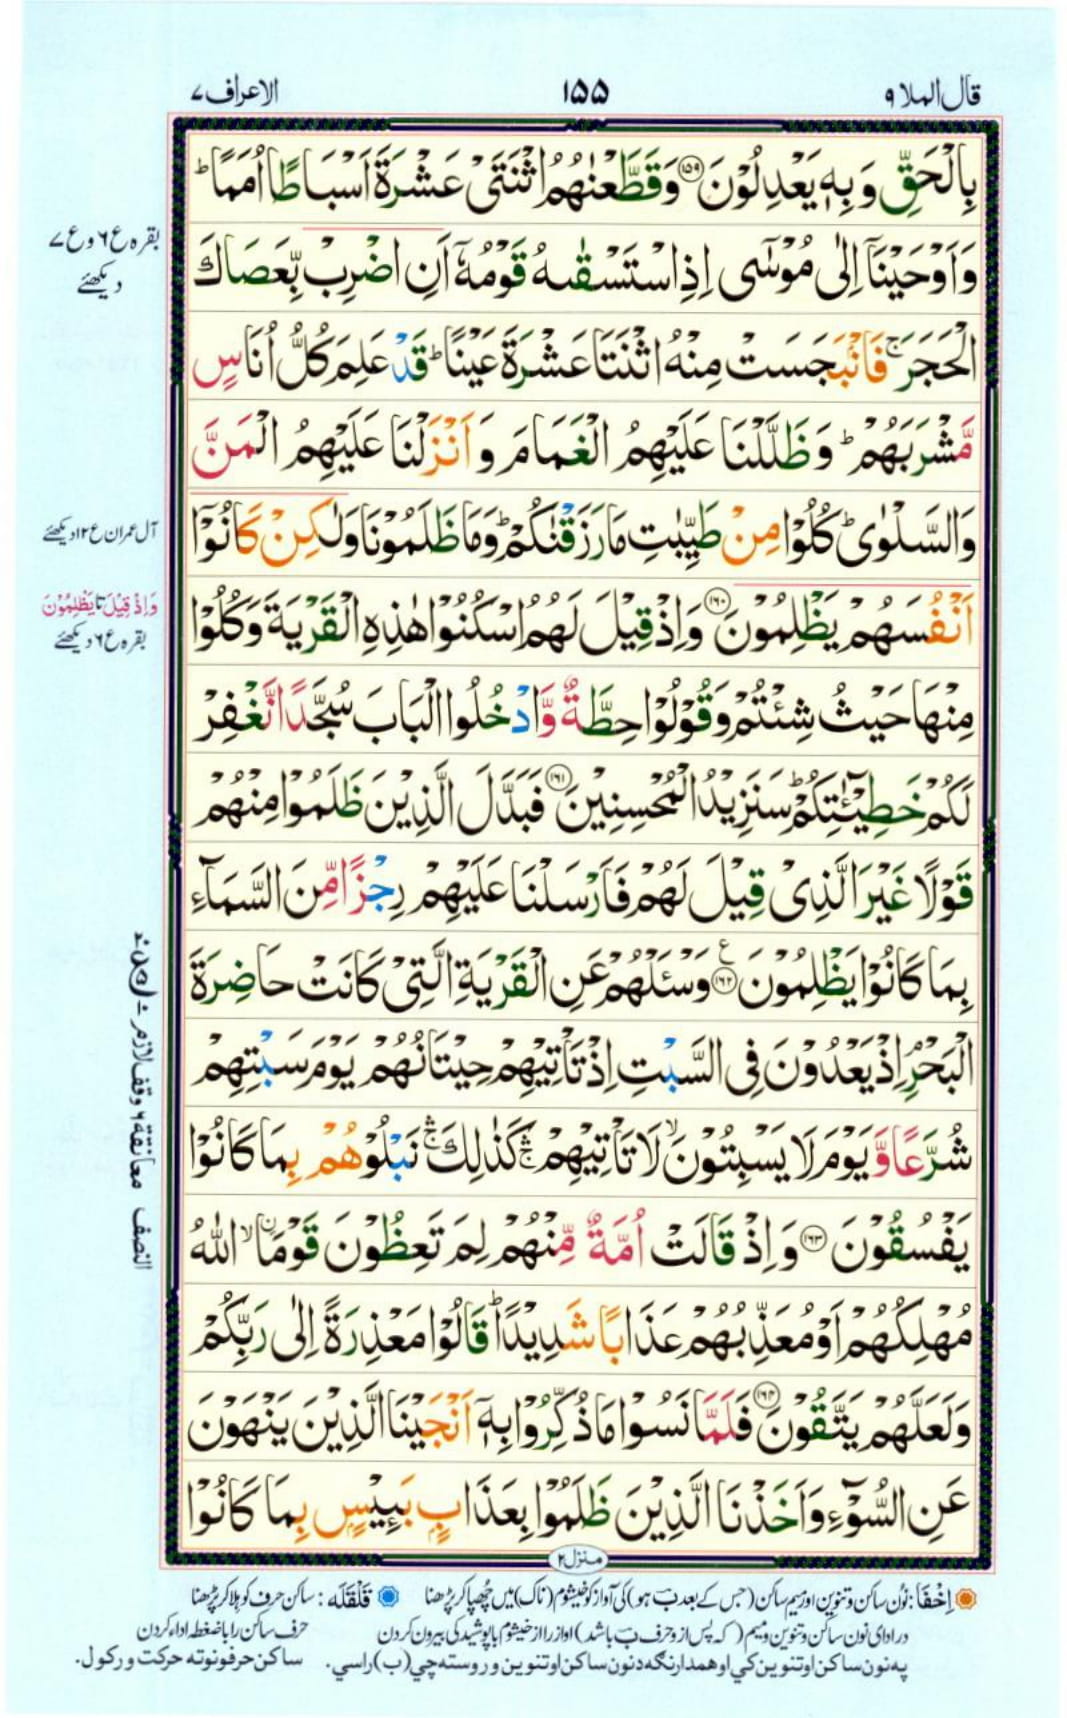 قال الملا ٩
١٥٥
الاعراف ٧
بِالْحَقِّ وَبِهٖ يَعْدِلُوْنَ ﴿١٥٩﴾ وَقَطَّعْنٰهُمُ اثْنَتَیْ عَشْرَةَ اَسْبَاطًا اُمَمًا ؕ
وَاَوْحَيْنَاۤ اِلٰى مُوْسٰۤى اِذِ اسْتَسْقٰىهُ قَوْمُهٗۤ اَنِ اضْرِبْ بِّعَصَاكَ
الْحَجَرَ ۚ فَانْۢبَجَسَتْ مِنْهُ اثْنَتَا عَشْرَةَ عَيْنًا ؕ قَدْ عَلِمَ كُلُّ اُنَاسٍ
مَّشْرَبَهُمْ ؕ وَظَلَّلْنَا عَلَيْهِمُ الْغَمَامَ وَاَنْزَلْنَا عَلَيْهِمُ الْمَنَّ
وَالسَّلْوٰى ؕ كُلُوْا مِنْ طَيِّبٰتِ مَا رَزَقْنٰكُمْ ؕ وَمَا ظَلَمُوْنَا وَلٰكِنْ كَانُوْۤا
اَنْفُسَهُمْ يَظْلِمُوْنَ ﴿١٦٠﴾ وَاِذْ قِيْلَ لَهُمُ اسْكُنُوْا هٰذِهِ الْقَرْيَةَ وَكُلُوْا
مِنْهَا حَيْثُ شِئْتُمْ وَقُوْلُوْا حِطَّةٌ وَّادْخُلُوا الْبَابَ سُجَّدًا نَّغْفِرْ
لَكُمْ خَطِيْٓـٰٔتِكُمْ ؕ سَنَزِيْدُ الْمُحْسِنِيْنَ ﴿١٦١﴾ فَبَدَّلَ الَّذِيْنَ ظَلَمُوْا مِنْهُمْ
قَوْلًا غَيْرَ الَّذِیْ قِيْلَ لَهُمْ فَاَرْسَلْنَا عَلَيْهِمْ رِجْزًا مِّنَ السَّمَآءِ
بِمَا كَانُوْا يَظْلِمُوْنَ ﴿١٦٢﴾ ع وَسْـَٔلْهُمْ عَنِ الْقَرْيَةِ الَّتِیْ كَانَتْ حَاضِرَةَ
الْبَحْرِ ۘ اِذْ يَعْدُوْنَ فِی السَّبْتِ اِذْ تَاْتِيْهِمْ حِيْتَانُهُمْ يَوْمَ سَبْتِهِمْ
شُرَّعًا وَّيَوْمَ لَا يَسْبِتُوْنَ ۙ لَا تَاْتِيْهِمْ ۛ ۚ كَذٰلِكَ ۛ ۚ نَبْلُوْهُمْ بِمَا كَانُوْا
يَفْسُقُوْنَ ﴿١٦٣﴾ وَاِذْ قَالَتْ اُمَّةٌ مِّنْهُمْ لِمَ تَعِظُوْنَ قَوْمَا ۙ اللّٰهُ
مُهْلِكُهُمْ اَوْ مُعَذِّبُهُمْ عَذَابًا شَدِيْدًا ؕ قَالُوْا مَعْذِرَةً اِلٰى رَبِّكُمْ
وَلَعَلَّهُمْ يَتَّقُوْنَ ﴿١٦٤﴾ فَلَمَّا نَسُوْا مَا ذُكِّرُوْا بِهٖۤ اَنْجَيْنَا الَّذِيْنَ يَنْهَوْنَ
عَنِ السُّوْٓءِ وَاَخَذْنَا الَّذِيْنَ ظَلَمُوْا بِعَذَابٍۭ بَـِٕيْسٍۭ بِمَا كَانُوْا
منزل ٢
بقره ع ٦ و ع ٧
دیکھئے
آل عمران ع ١٢ دیکھئے
وَاِذْ قِيْلَ تا يَظْلِمُوْنَ
بقره ع ٦ دیکھئے
النصف معانقة ٦ وقف لازم
اِخْفَا : نُون ساکن و تنوین اور میم ساکن (جس کے بعد ب ہو) کی آواز کو خیشوم (ناک) میں چُھپا کر پڑھنا
قَلْقَلَه : ساکن حرف کو ہلا کر پڑھنا
در ادای نون ساکن و تنوین و میم (که پس از و حرف ب باشد) اواز را از خیشوم با پوشیدگی بیرون کردن
حرف ساکن را با ضغطه اداء کردن
په نون ساکن او تنوین کي او همدارنګه د نون ساکن او تنوین وروسته چي (ب) راسي.
ساکن حرفونو ته حرکت ورکول.